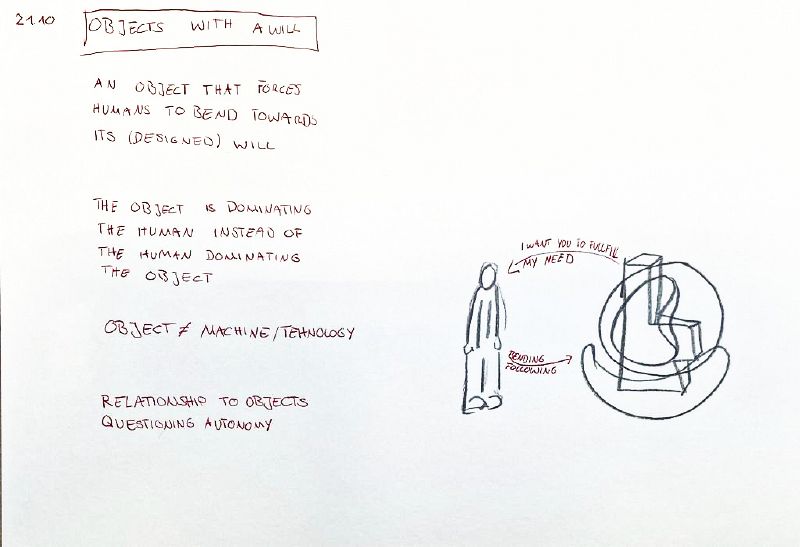 21.10
OBJECTS WITH A WILL
AN OBJECT THAT FORCES
HUMANS TO BEND TOWARDS
ITS (DESIGNED) WILL
THE OBJECT IS DOMINATING
THE HUMAN INSTEAD OF
THE HUMAN DOMINATING
THE OBJECT
OBJECT ≠ MACHINE/TEHNOLOGY
RELATIONSHIP TO OBJECTS
QUESTIONING AUTONOMY
I WANT YOU TO FULLFILL
MY NEED
BENDING
FOLLOWING